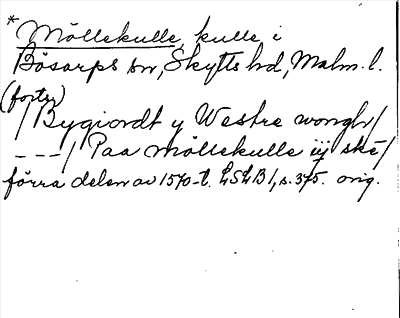 * Möllekulle, kulle i
Bösarps sn, Skytts hd, Malm. l.
(forts)
/ Bygiordt y Westre wongh /
---/ Paa Möllekulle iij ske /
förra delen av 1570-t. LSLB 1, s. 375. orig.